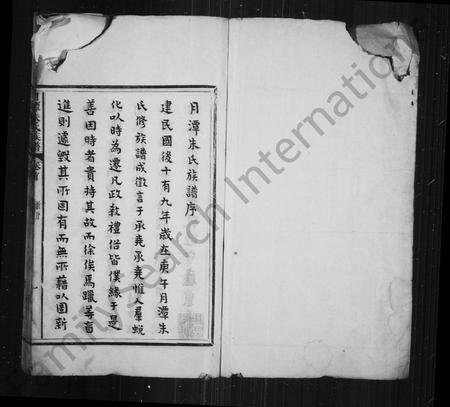 月潭朱氏族譜序
建民國後十有九年歲在庚午月潭朱
氏修族譜成徵言于承堯承堯惟人羣蛻
化以時為遷凡政教禮俗皆僕緣于是
善因時者貴持其故而徐俟焉躐等盲
進則遽毀其所固有而無所藉以圖新
FamilySearch International